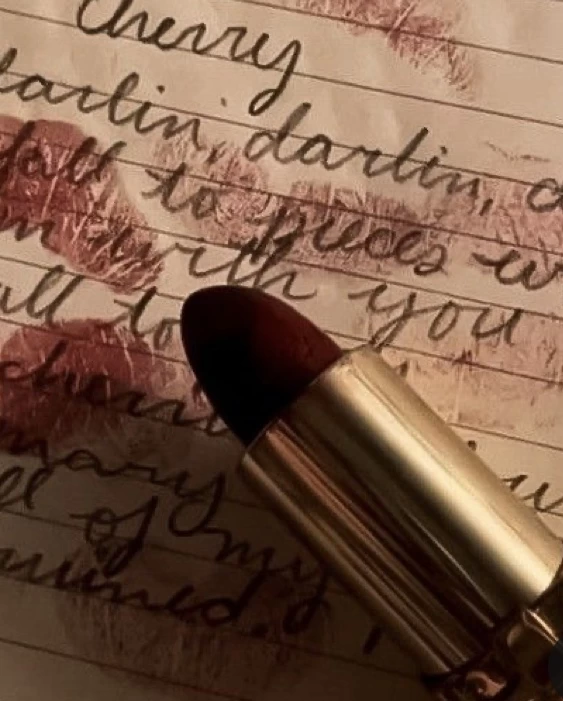 Cherry
darlin, darlin, d
fall to pieces w
en with you
all to
cherri
mary
ll of my
ruined.